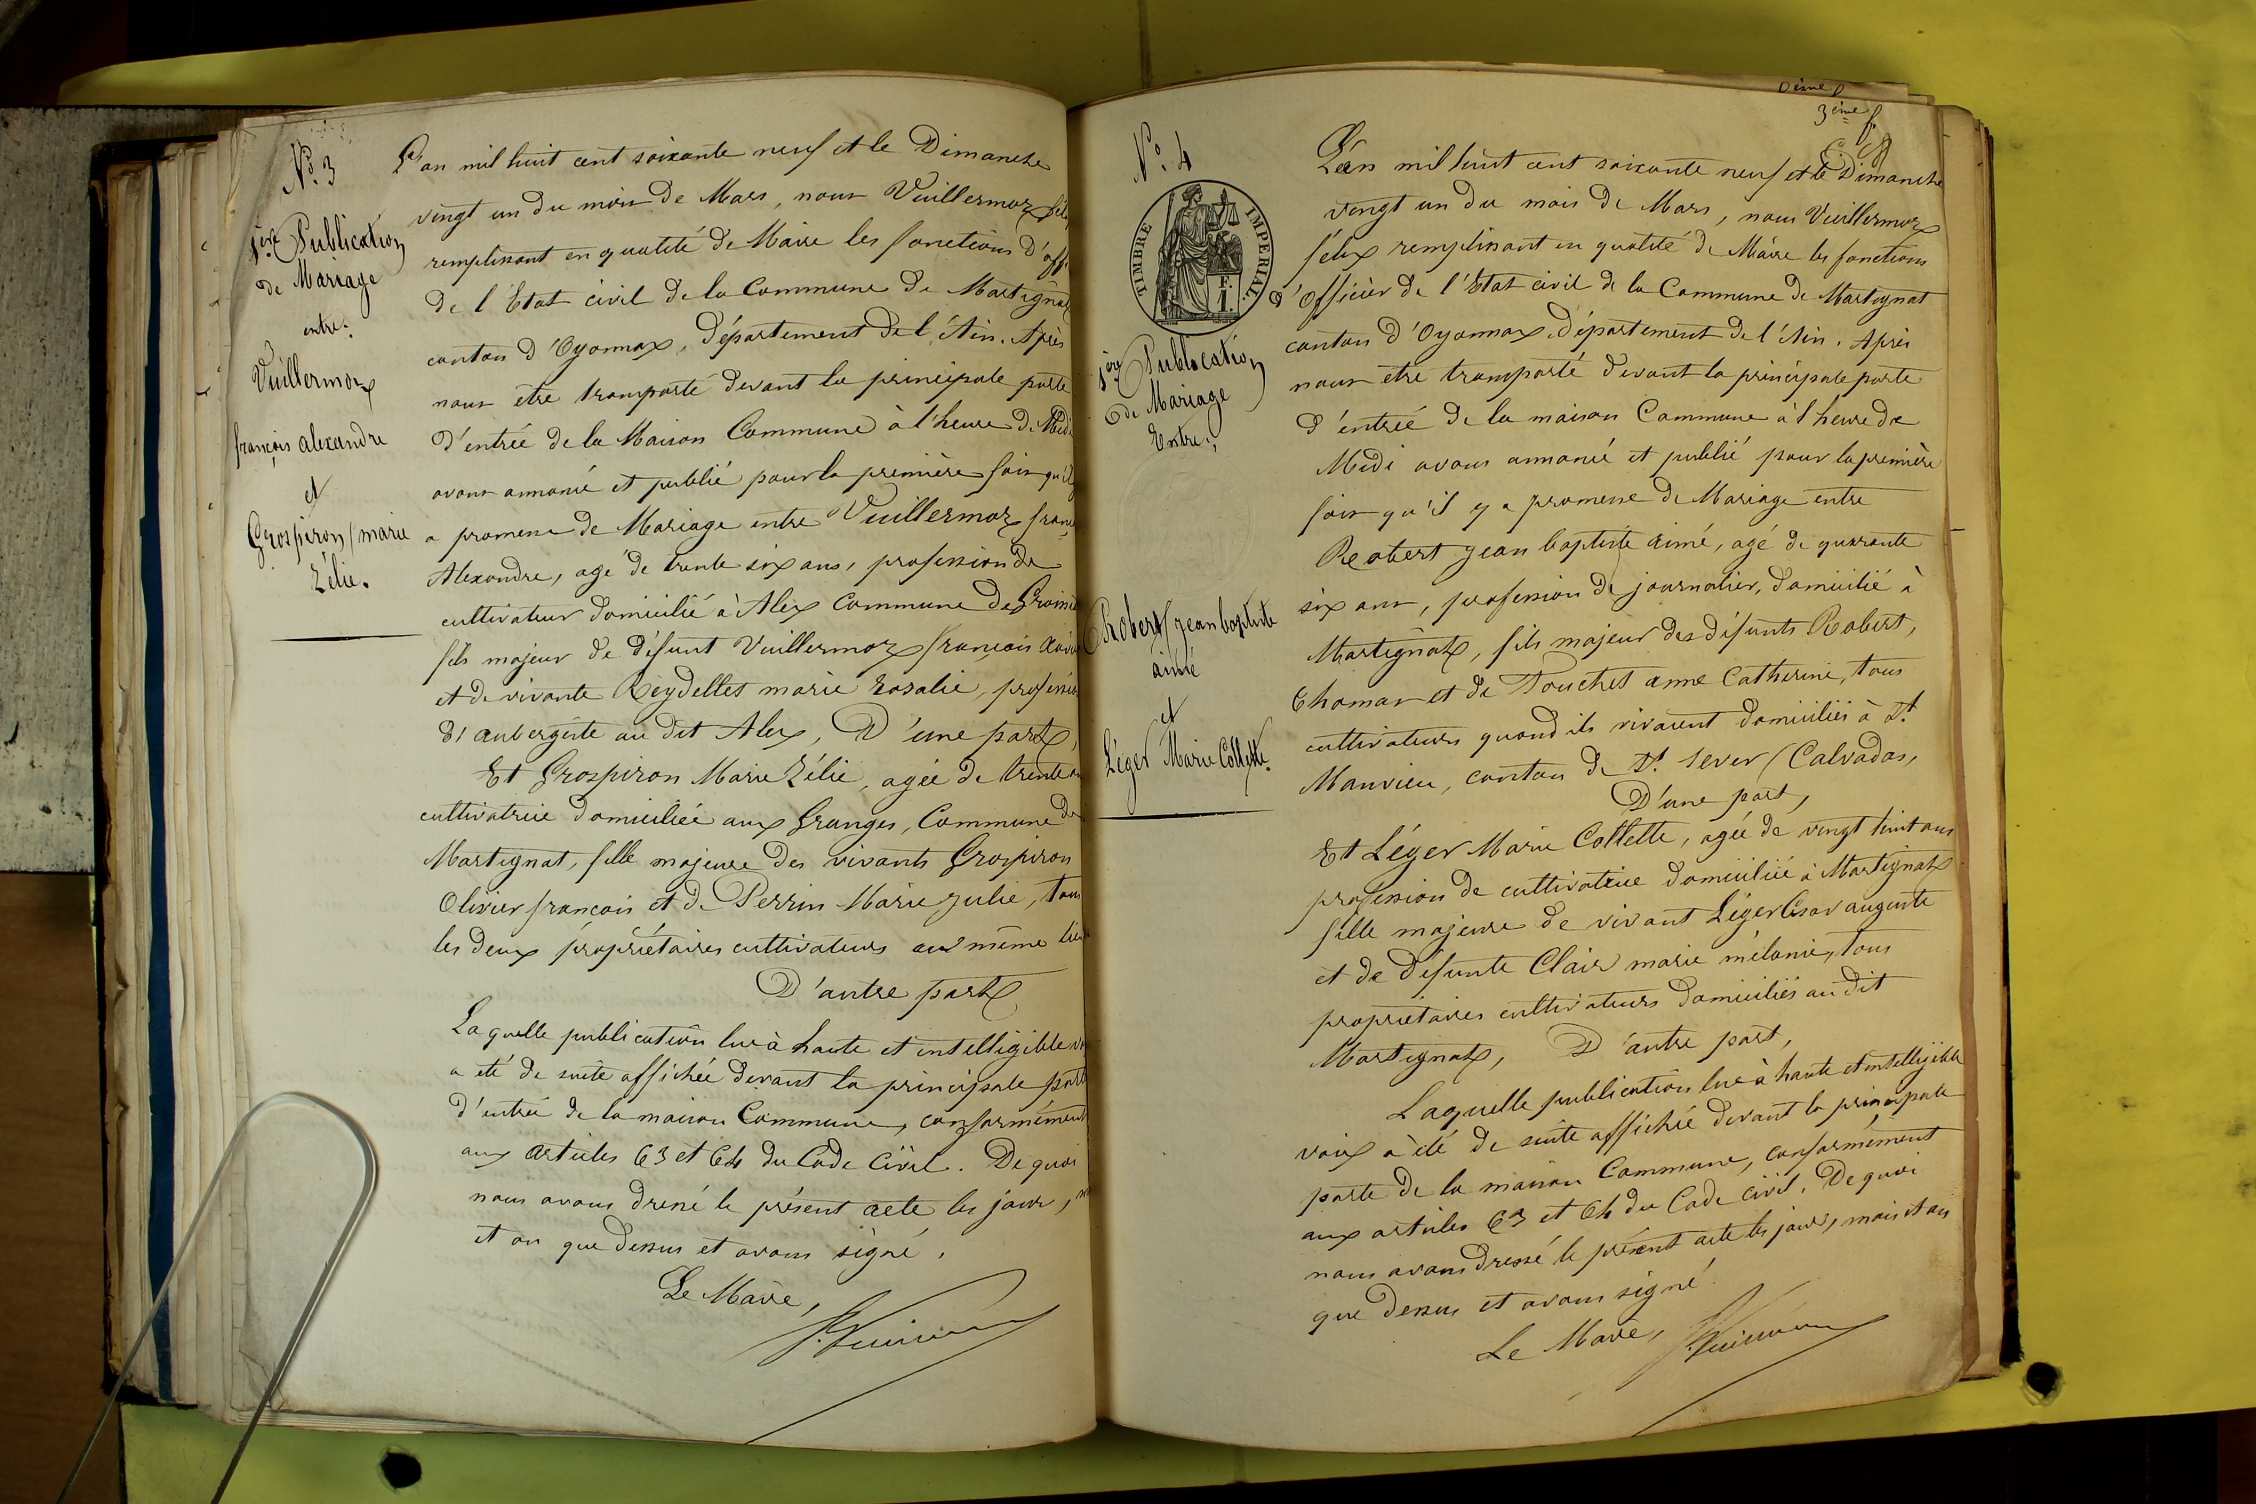 N.° 3
1ère Publication
de Mariage
entre:
Vuillermoz
françois alexandre
et
Grospiron marie
Zélie.
L'an mil huit cent soixante neuf et le Dimanche
vingt un du mois de Mars, nous Vuillermoz
remplissant en qualité de Maire les fonctions d'off
de l'Etat civil de la Commune de Martignat
canton d'Oyonnax, Département de l'Ain. Après
nous être transporté devant la principale porte
d'entrée de la Maison Commune à l'heure de Midi
avons annoncé et publié pour la première fois qu'il
a promesse de Mariage entre Vuillermoz franç
Alexandre, agé de trente six ans, profession de
cultivateur domicilié à Alex commune de
fils majeur de défunt Vuillermoz françois
et de vivante Reydellet marie rosalie, profession
d'aubergiste au dit Alex, D'une part,
Et Grospiron Marie Zélie, agée de trente
cultivatrice domiciliée aux Granges, Commune de
Martignat, fille majeure des vivants Grospiron
Olivier françois et de Perrin Marie Julie, tous
les deux propriétaires cultivateurs au même lieu
D'autre part
Laquelle publication lue à haute et intelligible
a été de suite affichée devant la principale porte
d'entrée de la maison Commune, conformément
aux articles 63 et 64 du Code Civil. De quoi
nous avons dressé le présent acte les jour,
et an que dessus et avons signé.
Le Maire,
3ème f.
N.° 4
TIMBRE IMPERIAL.
1ère Publication
de Mariage
Entre:
Robert jean baptiste
aimé
et
Léger Marie Collette.
L'an mil huit cent soixante neuf et le Dimanche
vingt un du mois de Mars, nous Vuillermoz
félix remplissant en qualité de Maire les fonctions
d'Officier de l'Etat civil de la Commune de Martignat
canton d'Oyonnax, département de l'Ain. Après
nous être transporté devant la principale porte
d'entrée de la maison Commune à l'heure de
Midi avons annoncé et publié pour la première
fois qu'il y a promesse de Mariage entre
Robert jean baptiste aimé, agé de quarante
six ans, profession de journalier, domicilié à
Martignat, fils majeur des défunts Robert,
Thomas et de Touchet anne Catherine, tous
cultivateurs quand ils vivaient domiciliés à St.
Manvieu, canton de St. Sever (Calvados,
D'une part,
Et Léger Marie Collette, agée de vingt huit ans
profession de cultivatrice domiciliée à Martignat
fille majeure de vivant Léger César auguste
et de défunte Clair marie mélanie, tous
propriétaires cultivateurs domiciliés au dit
Martignat, D'autre part,
Laquelle publication lue à haute et intelligible
voix a été de suite affichée devant la principale
porte de la maison Commune, conformément
aux articles 63 et 64 du Code civil. De quoi
nous avons dressé le présent acte les jour, mois et an
que dessus et avons signé.
Le Maire,